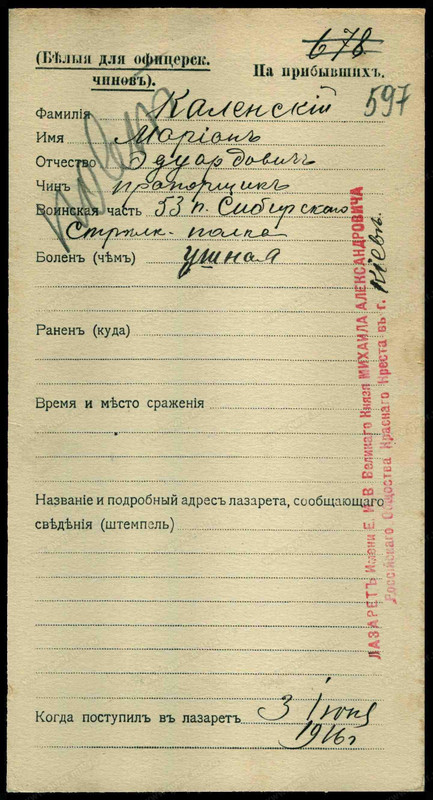 678
(Бѣлыя для офицерск.
чиновъ).
На прибывшихъ.
597
Фамилія Каленскій
Имя Маріанъ
Отчество Эдуардовичъ
Чинъ прапорщикъ
Воинская часть 53 п. Сибирскаго
Стрѣлк. полка
Боленъ (чѣмъ) ушная
Раненъ (куда)
Время и мѣсто сраженія
Названіе и подробный адресъ лазарета, сообщающаго
свѣдѣнія (штемпель)
Когда поступилъ въ лазаретъ 3 Іюня
1916 г
ЛАЗАРЕТЪ Имени Е. И. В. Великаго Князя МИХАИЛА АЛЕКСАНДРОВИЧА
Россійскаго Общества Краснаго Креста въ г. Кіевѣ.